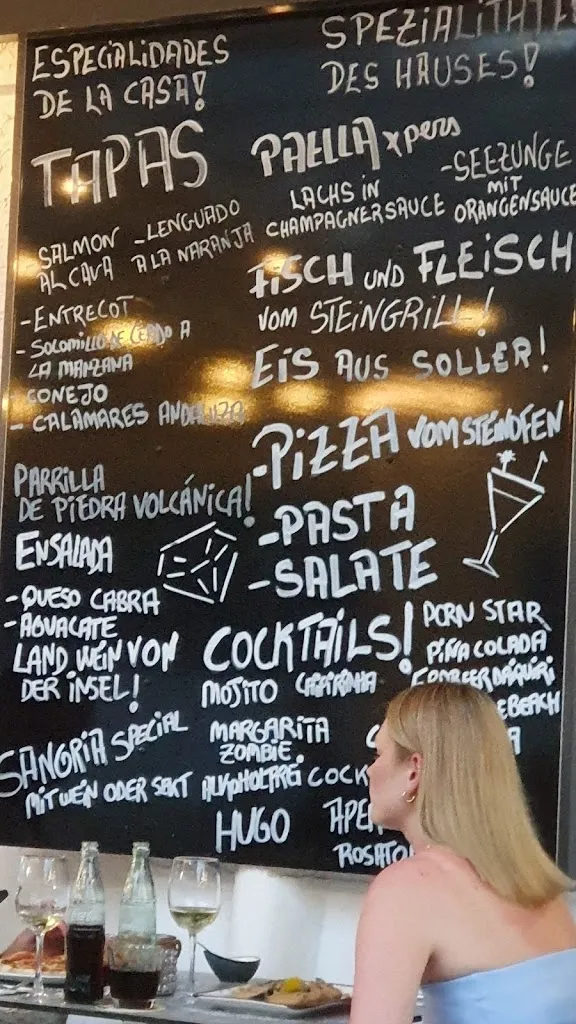 ESPECIALIDADES
DE LA CASA!
TAPAS
SALMON
AL CAVA
-LENGUADO
A LA NARANJA
-ENTRECOT
-SOLOMILLO DE CERDO A
LA MANZANA
CONEJO
- CALAMARES ANDALUZA
PARRILLA
DE PIEDRA VOLCÁNICA!
ENSALADA
-QUESO CABRA
-AGUACATE
LAND WEIN VON
DER INSEL!
SANGRIA SPECIAL
MIT WEIN ODER SEKT
SPEZIALITÄTE
DES HAUSES!
PAELLA x pers
LACHS IN
CHAMPAGNERSAUCE
-SEEZUNGE
MIT
ORANGENSAUCE
FISCH UND FLEISCH
VOM STEINGRILL!
EIS AUS SOLLER!
-PIZZA VOM STEINOFEN
-PASTA
-SALATE
COCKTAILS!
MOJITO CAIPIRINHA
MARGARITA
ZOMBIE
ALKOHOLFREI COCK
HUGO
APER
ROSATO
PORN STAR
PIÑA COLADA
BEACH